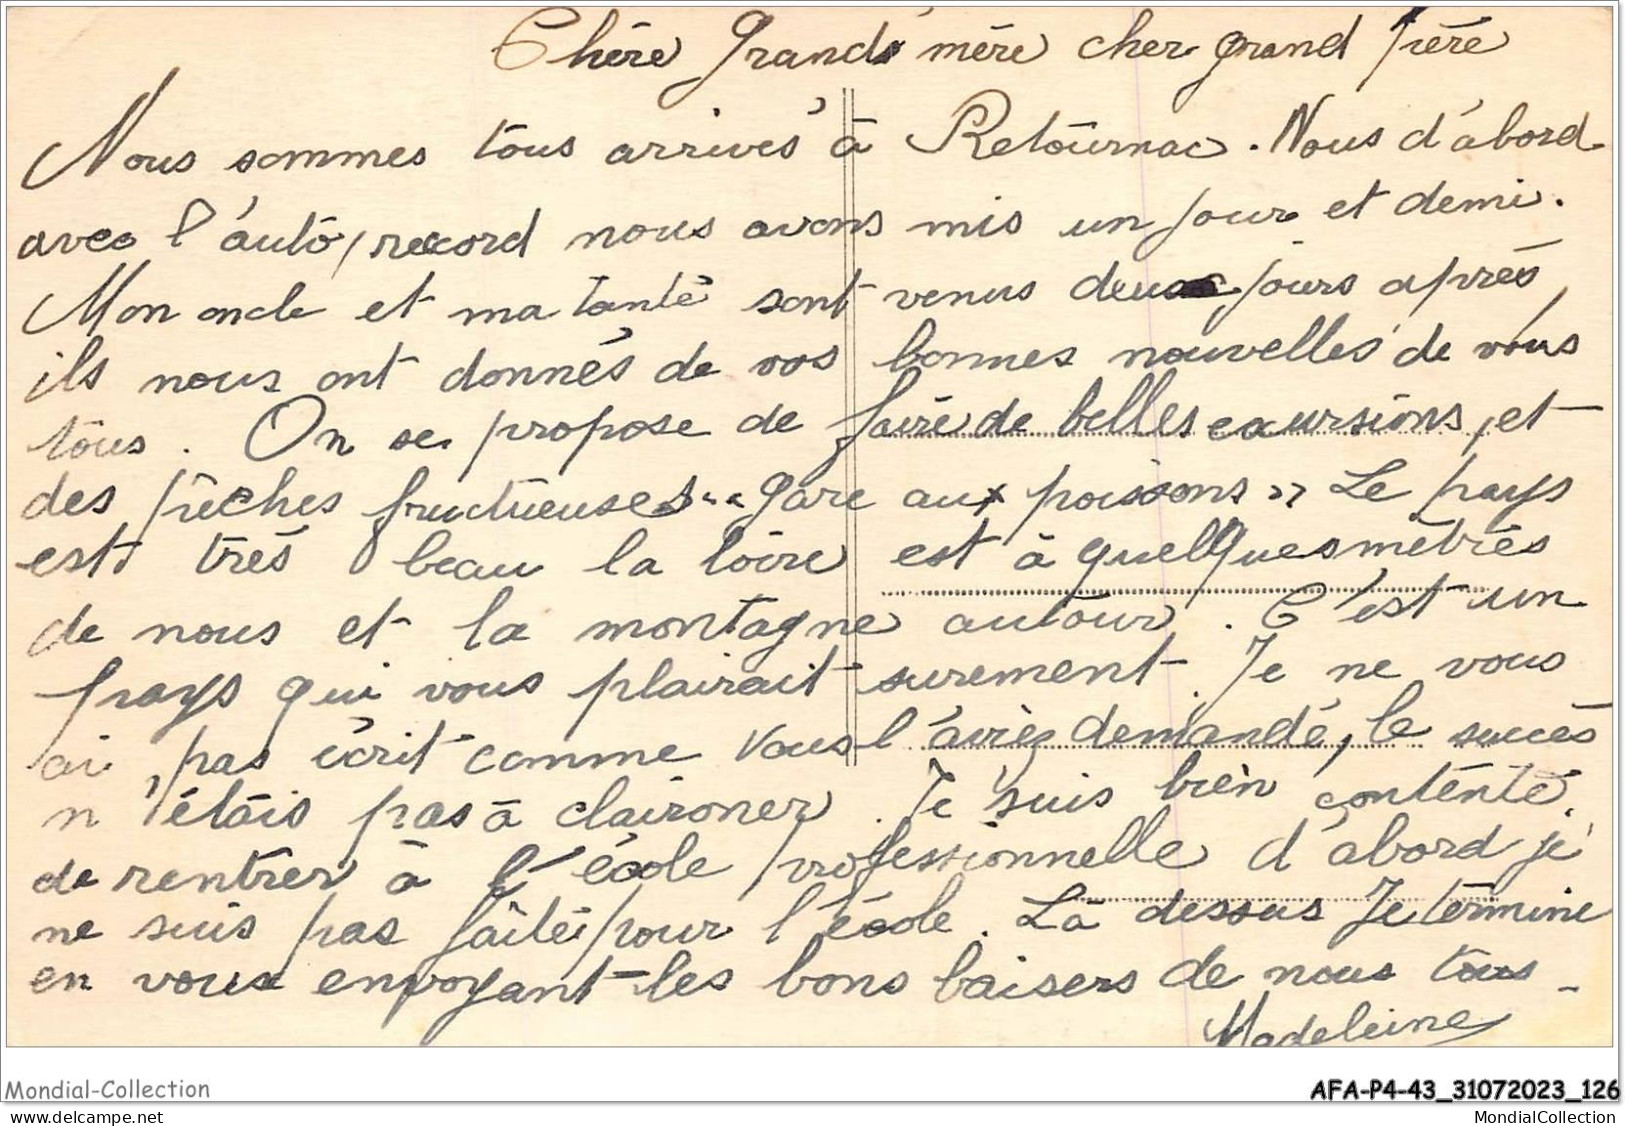 Chère Grand'mère cher grand père
Nous sommes tous arrivés à Retournac. Nous d'abord
avec l'auto, record nous avons mis un jour et demi.
Mon oncle et ma tante sont venus deux jours après,
ils nous ont donnés de vos bonnes nouvelles de vous
tous. On se propose de faire de belles excursions, et
des pêches fructueuses "Gare aux poissons" Le pays
est très beau la loire est à quelques mètres
de nous et la montagne autour. C'est un
pays qui vous plairait surement. Je ne vous
ai pas écrit comme vous l'aviez demandé, le succès
n'étais pas à claironer. Je suis bien contente
de rentrer à l'école professionnelle d'abord je
ne suis pas faite pour l'école. Là dessus Je termine
en vous envoyant les bons baisers de nous tous -
Madeleine
Mondial-Collection
AFA-P4-43_31072023_126
MondialCollection.be/fr/nl/com
MondialCollection